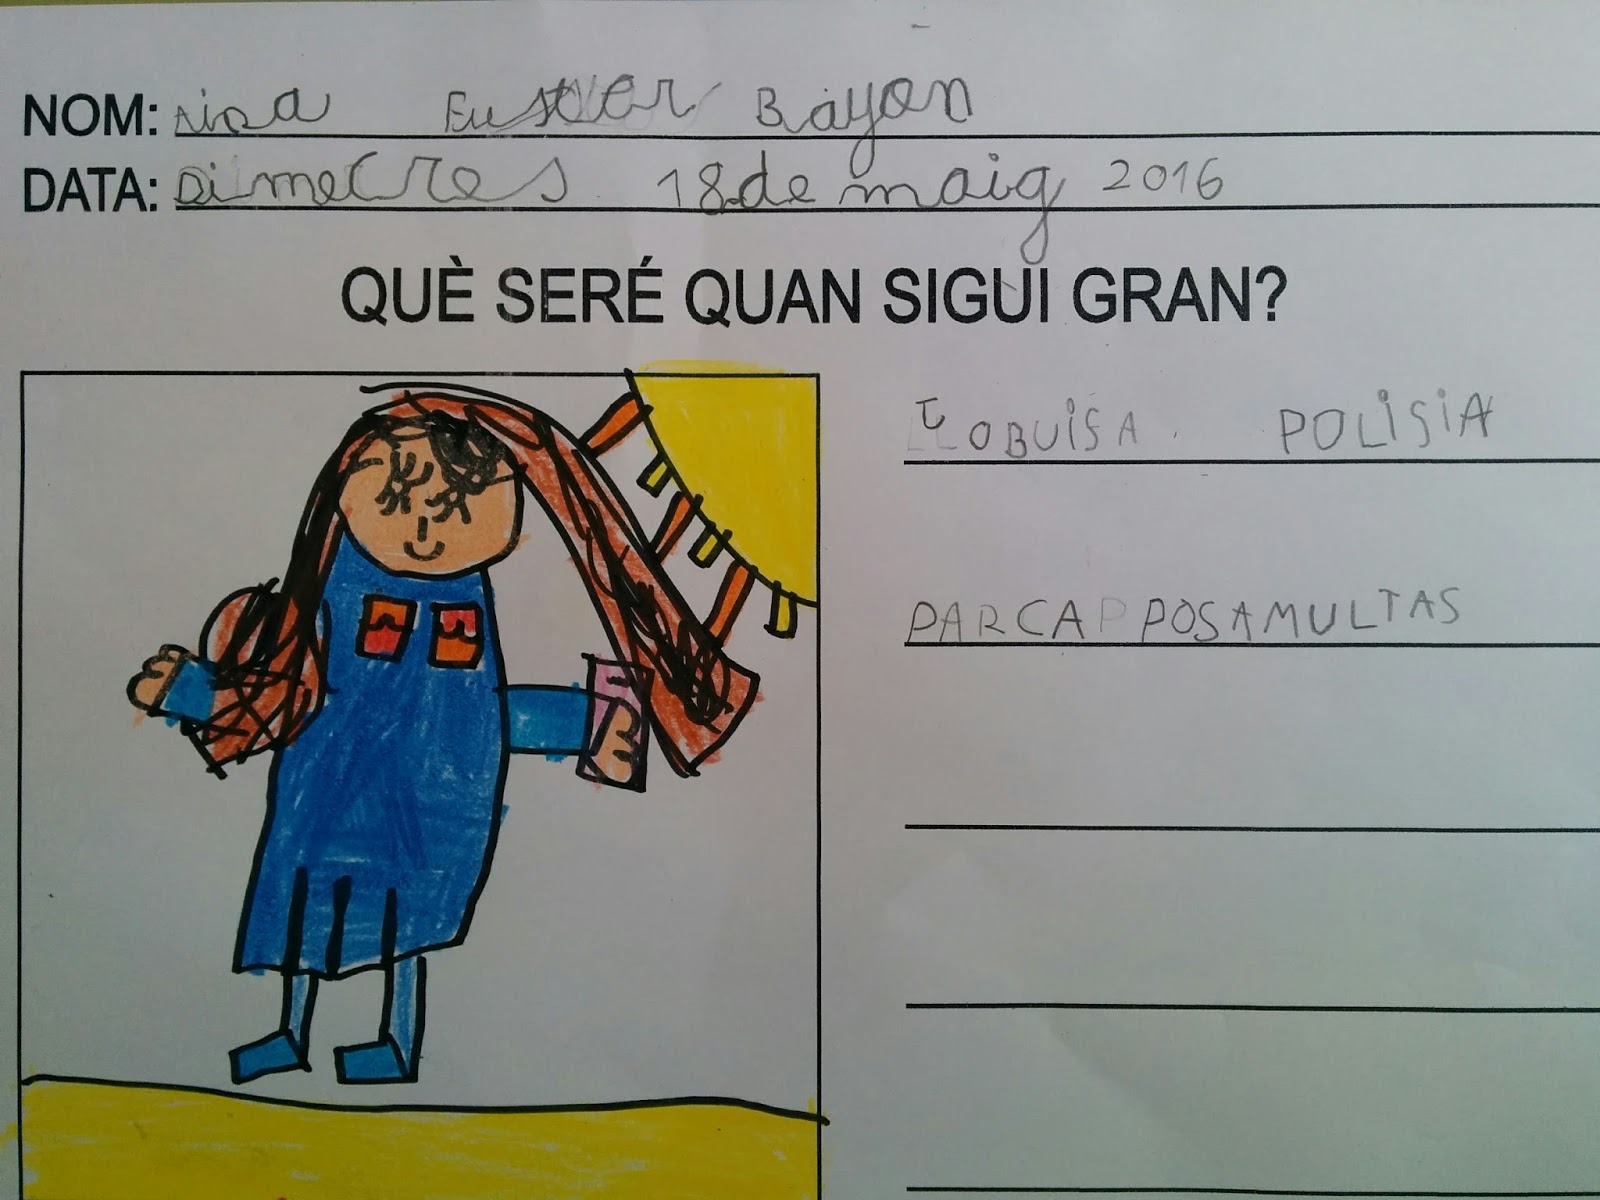 NOM: Euster Bayon
DATA: Dimecres 18 de maig 2016
QUÈ SERÉ QUAN SIGUI GRAN?
POLISIA
PARCAP POSAMULTAS